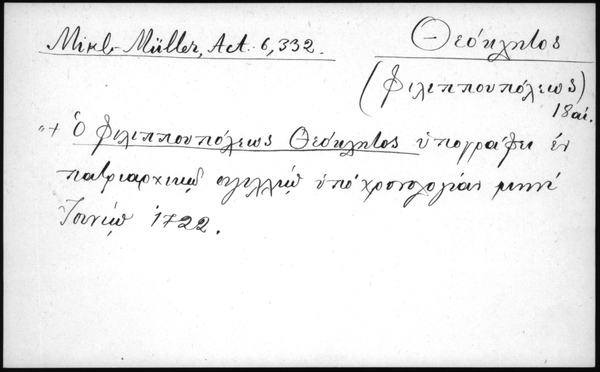 Mikl-Müller, Act. 6, 332.
Θεόκλητος
(Φιλιππουπόλεως)
18 αἰ.
"+ Ὁ Φιλιππουπόλεως Θεόκλητος ὑπογράφει ἐν
πατριαρχικῷ σιγιλλίῳ ὑπὸ χρονολογίαν μηνὶ
Ἰουνίῳ 1722.